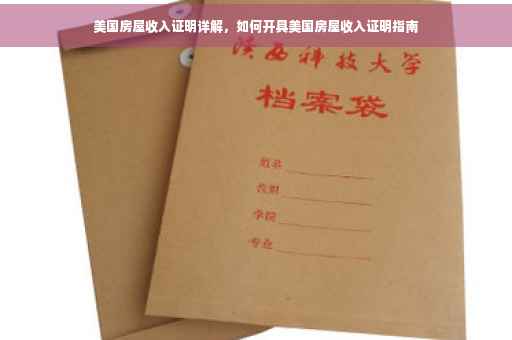 美国房屋收入证明详解，如何开具美国房屋收入证明指南
陕西科技大学
档案袋
姓名
学院
专业